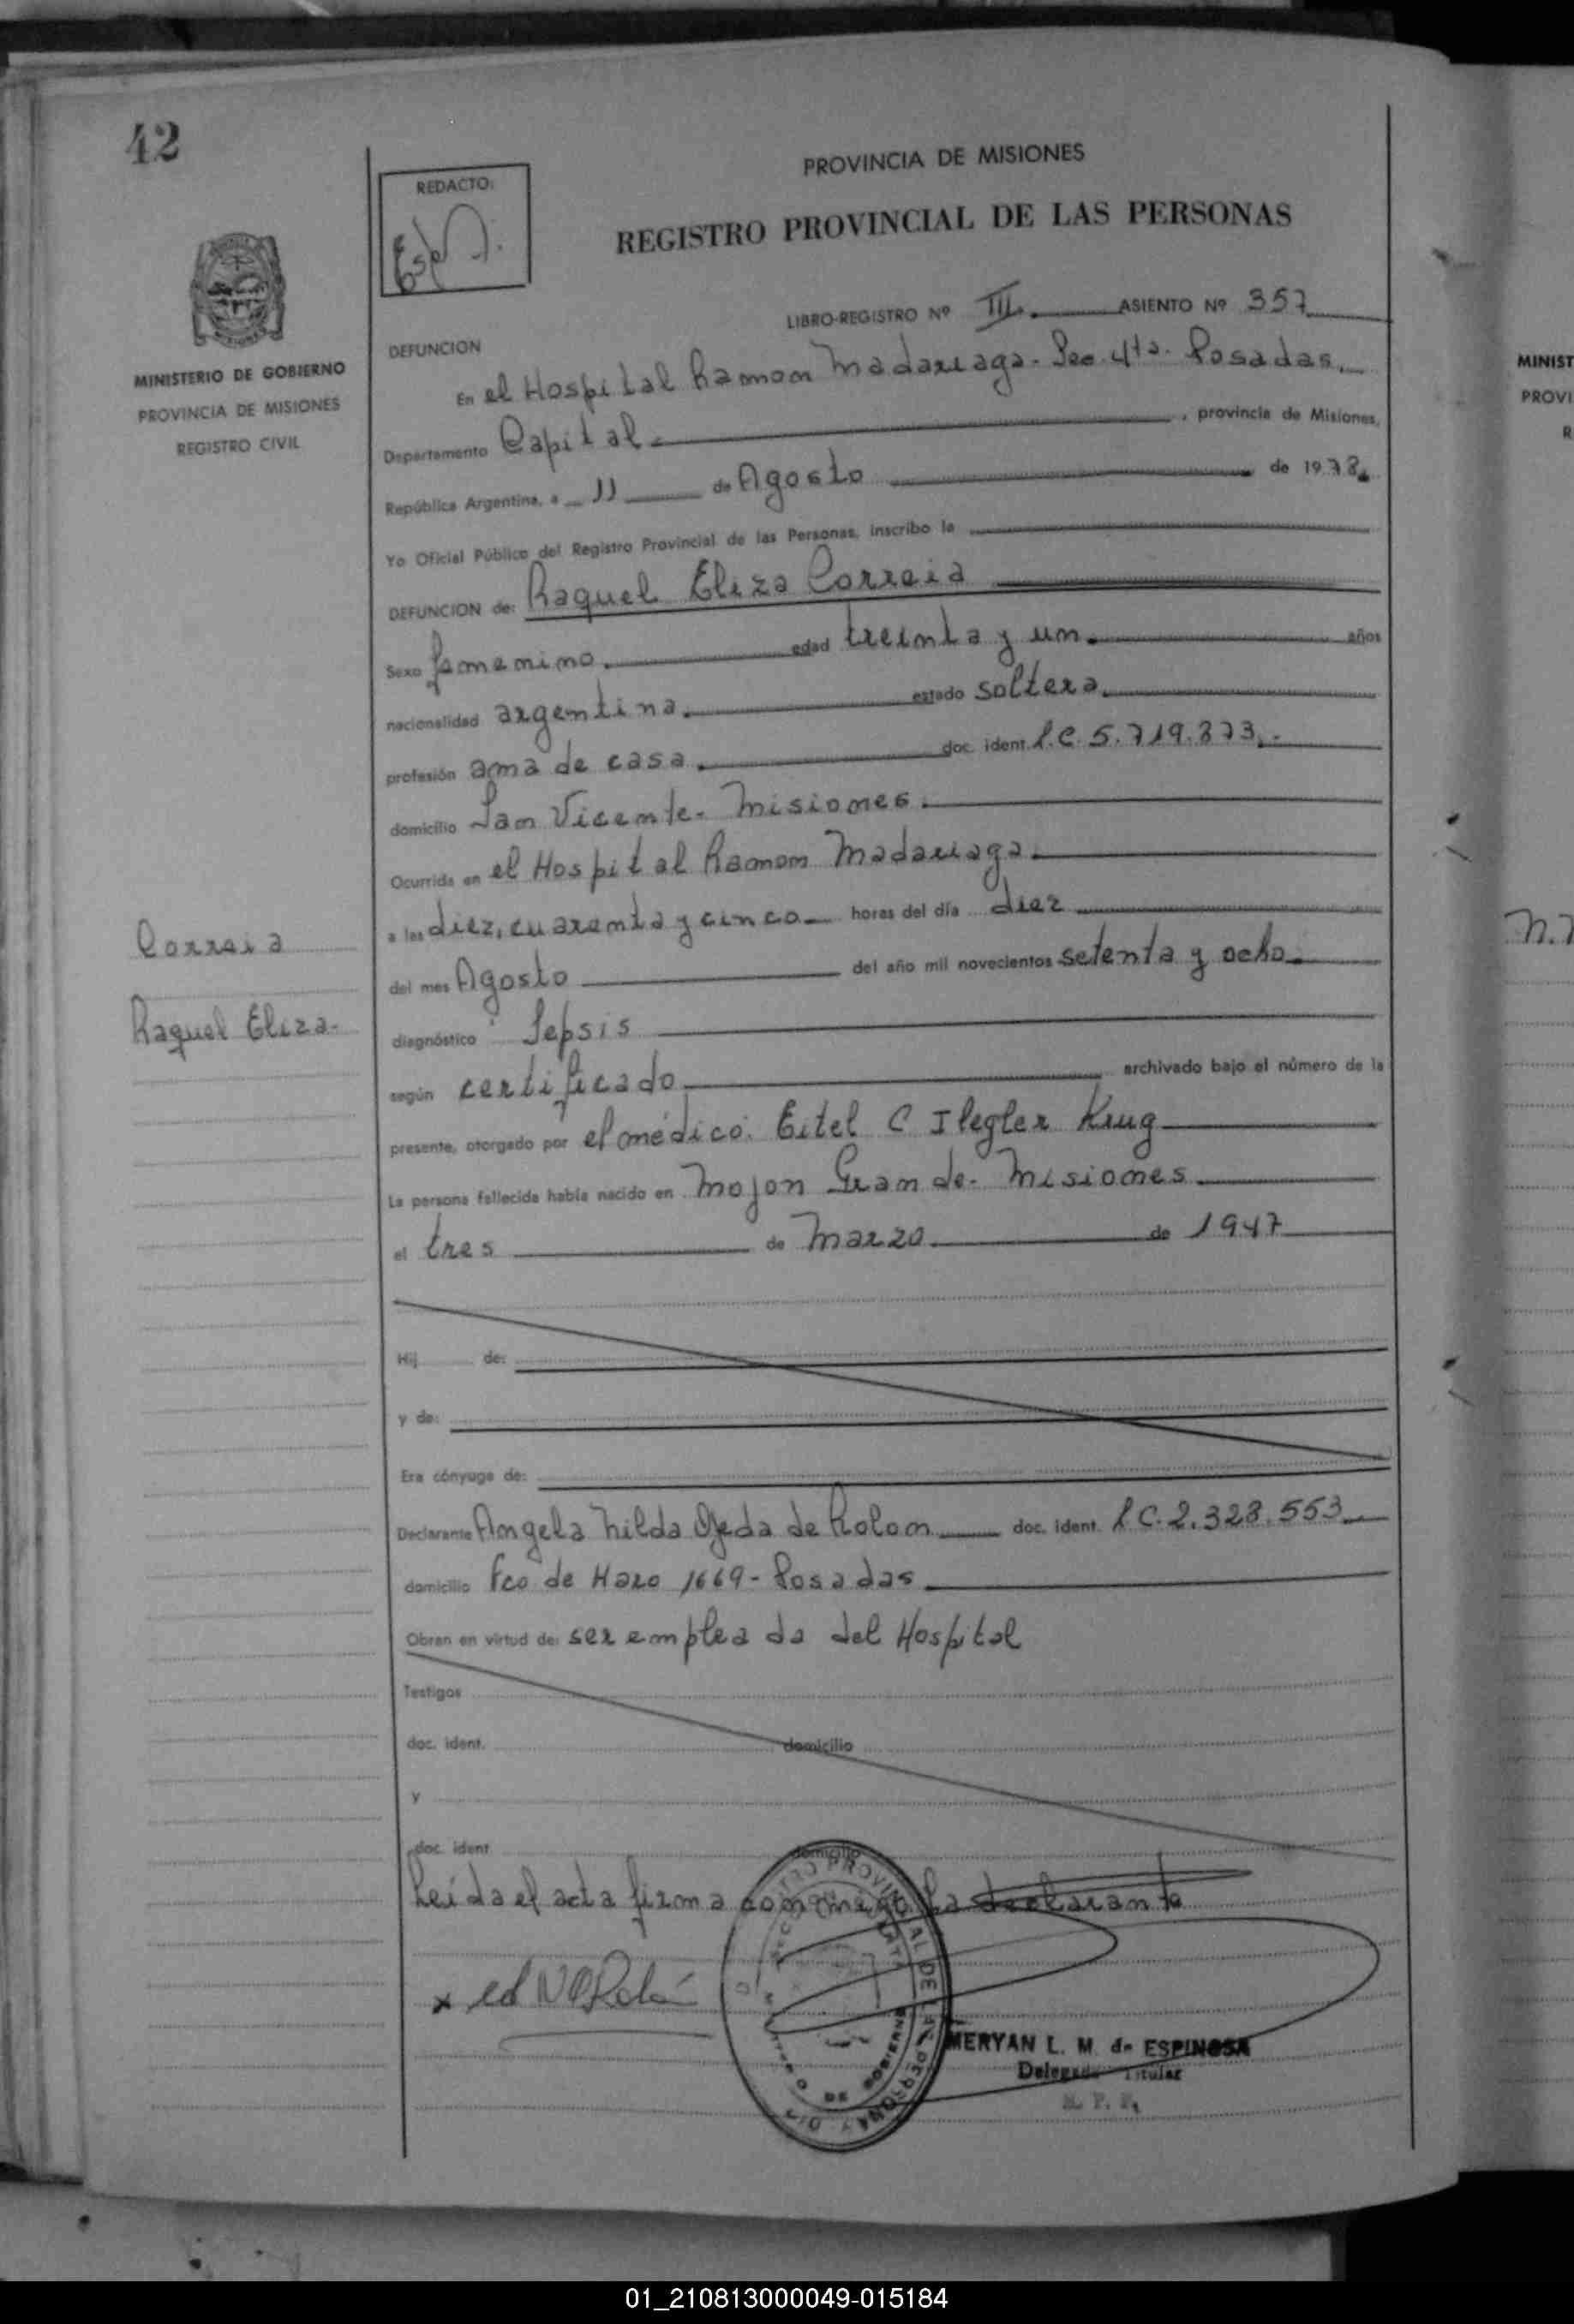 42
PROVINCIA DE MISIONES
REDACTO:
REGISTRO PROVINCIAL DE LAS PERSONAS
LIBRO-REGISTRO Nº III. ASIENTO Nº 357
DEFUNCION
MINISTERIO DE GOBIERNO
PROVINCIA DE MISIONES
REGISTRO CIVIL
En el Hospital Ramon Madariaga - Sec. 4ta. Posadas.
Departamento Capital. , provincia de Misiones,
República Argentina, a 11 de Agosto de 1978.
Yo Oficial Público del Registro Provincial de las Personas, inscribo la
DEFUNCION de: Raquel Eliza Correia
Sexo femenino. edad treinta y un. años
nacionalidad argentina. estado soltera.
profesión ama de casa. doc. ident. L.C. 5.719.373.-
domicilio San Vicente - Misiones.
Ocurrida en el Hospital Ramon Madariaga.
a las diez, cuarenta y cinco horas del día diez
del mes Agosto del año mil novecientos setenta y ocho.
Correia
Raquel Eliza.
diagnóstico Sepsis
según certificado archivado bajo el número de la
presente, otorgado por el médico: Eitel C Ilegler Krug
La persona fallecida había nacido en Mojon Grande - Misiones.
el tres de Marzo de 1947
Hij de:
y de:
Era cónyuge de:
Declarante Angela Nilda Ojeda de Rolon doc. ident. L.C. 2.328.553
domicilio Fco de Haro 1669 - Posadas
Obran en virtud de: ser empleada del Hospital
Testigos
doc. ident. domicilio
y
doc. ident. domicilio
Leída el acta firma conmigo la declarante
MERYAN L. M. de ESPINOSA
Delegada Titular
MINIST
PROVI
R
01_210813000049-015184